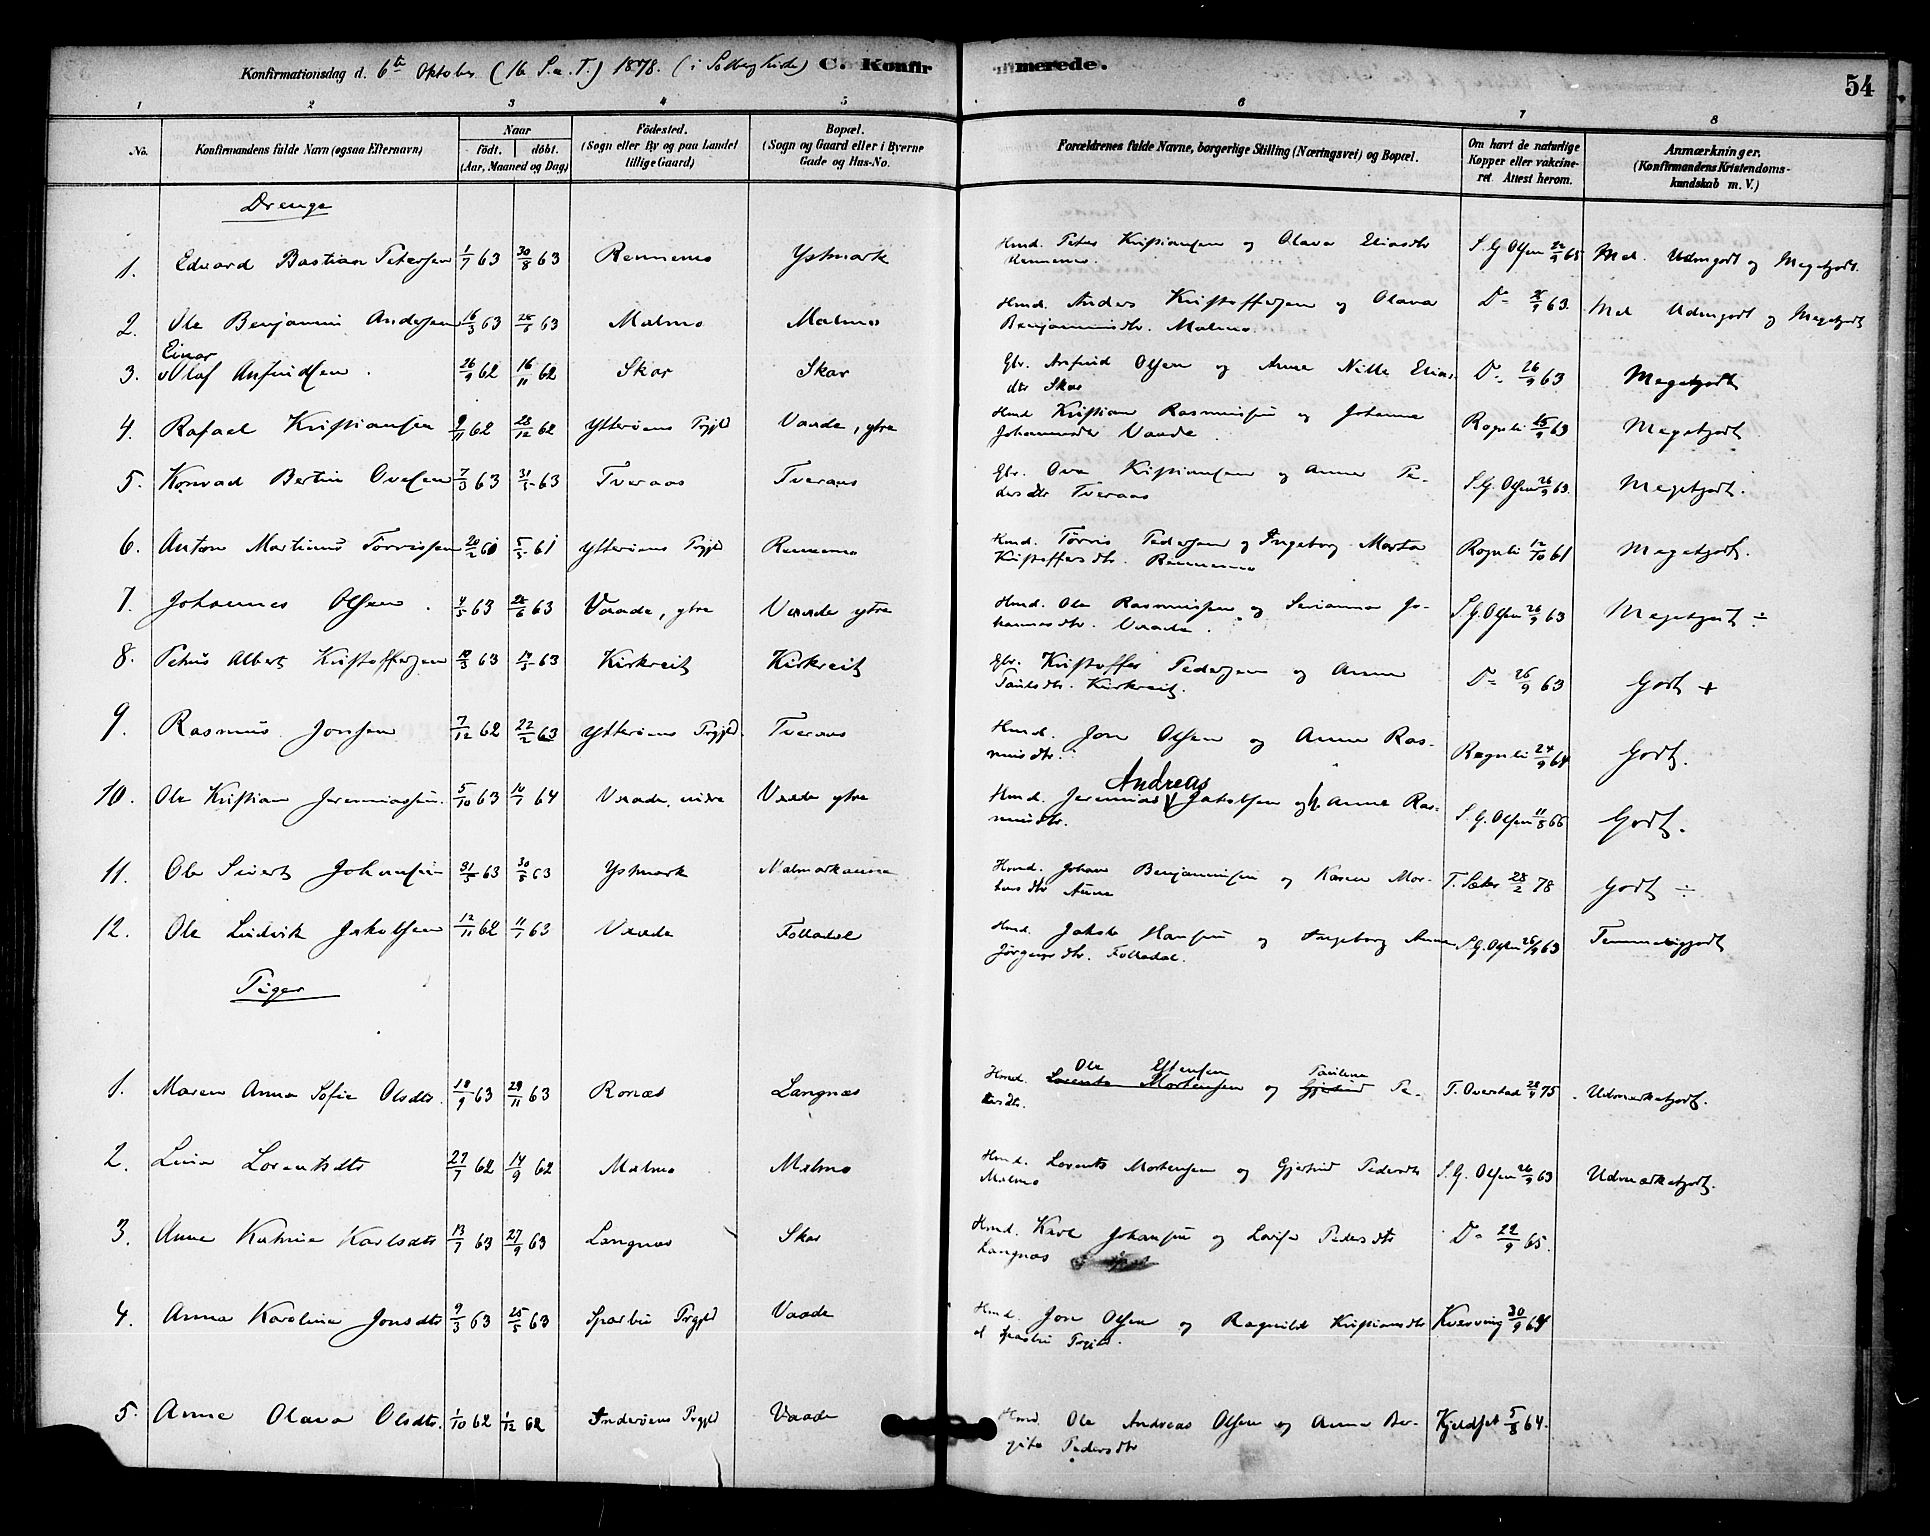 Konfirmationsdag d. 6te Oktober (16 S. e. T.) 1878. (i Solberg Kirke) C. Konfirmerede.
54
1 2 3 4 5 6 7 8
No.
Konfirmandens fulde Navn (ogsaa Efternavn)
Naar
födt. döbt.
(Aar, Maaned og Dag)
Födested.
(Sogn eller By og paa Landet
tillige Gaard)
Bopæl.
(Sogn og Gaard eller i Byerne
Gade og Hus-No.
Forældrenes fulde Navne, borgerlige Stilling (Næringsvei) og Bopæl.
Om havt de naturlige
Kopper eller vakcine-
ret. Attest herom.
Anmærkninger.
(Konfirmandens Kristendoms-
kundskab m. V.)
Drenge
1. Edvard Bastian Petersen 1/7 63 30/8 63 Rennemo Ystmark Hmd. Peter Kristiansen og Olava Eliasdtr S. G. Olsen 22/9 65 Mel. Udmgodt og Megetgodt.
Rennemo.
2. Ole Benjamin Andersen 16/3 63 25/5 63 Malmo Malmo Hmd. Anders Kristoffersen og Olava Do 26/9 63. Mel Udmgodt og Megetgodt
Benjaminsdtr. Malmo.
Einar
3. Olaf Anfindsen. 26/9 62 16/11 62 Skar Skar Gbr. Anfind Olsen og Anne Nille Elias- Do 26/9 63 Megetgodt
dtr Skar
4. Rafael Kristiansen 9/11 62 28/12 62 Ytterøens Prgjld Vaade, ytre Hmd Kristian Rasmussen og Johanna Rognli 25/9 63 Megetgodt.
Johannesdtr Vaade.
5. Konrad Bertin Ovesen 7/3 63 31/5 63 Tveraas Tveraas Gbr. Ove Kristiansen og Anne Pe- S. G. Olsen 26/9 63. Megetgodt.
dersdtr Tveraas
6. Anton Martinus Torrissen 20/2 61 5/5 61 Ytterøens Prgjld Rennemo Hmd. Tørris Pedersen og Ingeborg Marta Rognli 12/10 61 Megetgodt.
Kristoffersdtr. Rennemo
7. Johannes Olsen. 4/5 63 28/6 63 Vaade, ytre Vaade ytre Hmd. Ole Rasmussen og Serianna Jo- S. G. Olsen 26/9 63 Megetgodt ÷
hannesdtr. Vaade.
8. Petrus Albert Kristoffersen 10/3 63 17/5 63 Kirkreit Kirkreit Gbr. Kristoffer Pedersen og Anne Do 26/9 63 Godt +
Paulsdtr. Kirkreit.
9. Rasmus Jonsen 7/12 62 22/2 63 Ytterøens Prgjld. Tveraas Hmd. Jon Olsen og Anne Ras- Rognli 24/9 64 Godt.
musdtr.
Andreas
10. Ole Kristian Jeremiassen. 5/10 63 10/1 64 Vaade, indre Vaade ytre Hmd. Jeremias Jakobsen og h. Anne Ras- S. G. Olsen 11/8 66 Godt.
musdtr.
11. Ole Sivert Johansen 31/5 63 30/8 63 Ystmark Hmd. Johan Benjaminsen og Karen Mor- T. Sæter 28/2 78 Godt ÷
tensdtr Aune
12. Ole Ludvik Jakobsen 12/11 62 11/1 63 Vaade Folladal Hmd. Jakob Hansen og Ingeborg Anna S. G. Olsen 26/9 63 Temmeliggodt
Jørgensdtr. Folladal.
Piger
Ole Estensen Paulina
1. Maren Anna Sofie Olsdtr. 10/9 63 29/11 63 Ronæs Langnæs Hmd. Lorents Mortensen og Gjertrud Pe- T. Overstad 28/9 75. Udmærketgodt.
dersdtr.
2. Lina Lorentsdtr 27/7 62 14/9 62 Malmo Malmo Hmd. Lorents Mortensen og Gjertrud Pedersdtr S. G. Olsen 26/9 63 Udmærketgodt.
Malmo
3. Anne Katrine Karlsdtr 13/7 63 27/9 63 Langnæs Skar Hmd. Karl Johansen og Lovise Pedersdtr Do 22/9 65.
Langnæs
4. Anna Karoline Jonsdtr 9/3 63 25/5 63 Sparbu Prgjld Vaade Hmd. Jon Olsen og Ragnild Kristiansdtr Kvesving 30/9 64
Sparbu Prgjld.
5. Anne Olava Olsdtr. 1/10 62 1/12 62 Inderøens Prgjld Vaade Hmd. Ole Andreas Olsen og Anna Ber- Kjeldset 5/8 64.
gite Pedersdtr